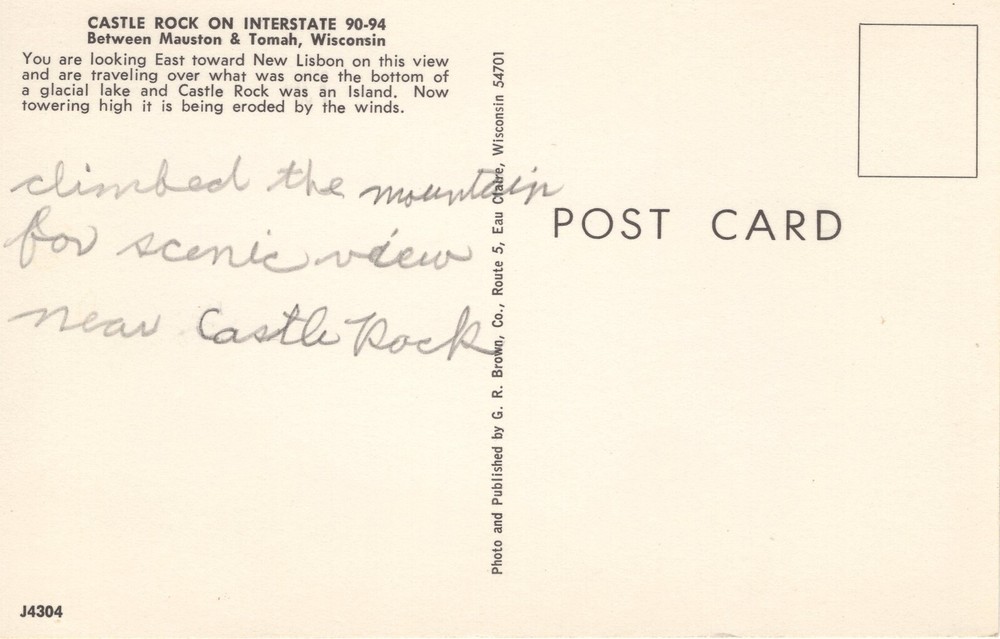 CASTLE ROCK ON INTERSTATE 90-94
Between Mauston & Tomah, Wisconsin
You are looking East toward New Lisbon on this view
and are traveling over what was once the bottom of
a glacial lake and Castle Rock was an Island. Now
towering high it is being eroded by the winds.
climbed the mountain
for scenic view
near Castle Rock
Photo and Published by G. R. Brown, Co., Route 5, Eau Claire, Wisconsin 54701
POST CARD
J4304